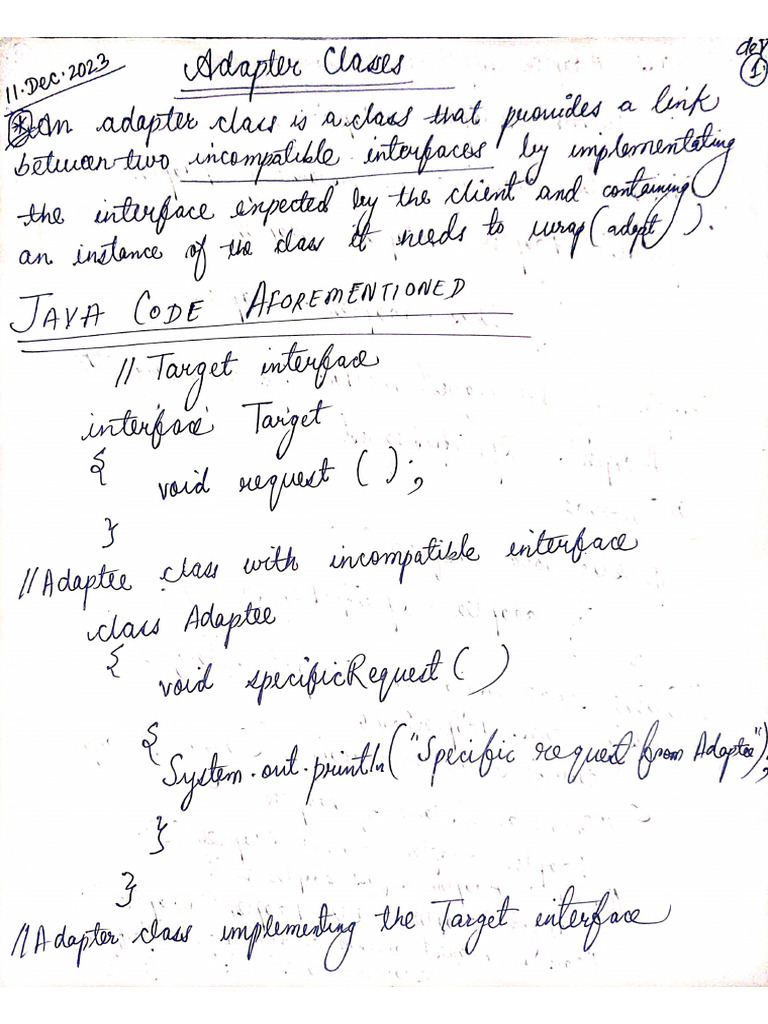 11.Dec.2023
Adapter Classes
dey
1
* An adapter class is a class that provides a link
between two incompatible interfaces by implementating
the interface expected by the client and containing
an instance of the class it needs to wrap (adept).
JAVA CODE AFOREMENTIONED
// Target interface
interface Target
{
void request ( );
}
//Adaptee class with incompatible interface
class Adaptee
{
void specificRequest ( )
{
System.out.println("Specific request from Adaptee");
}
}
//Adapter class implementing the Target interface